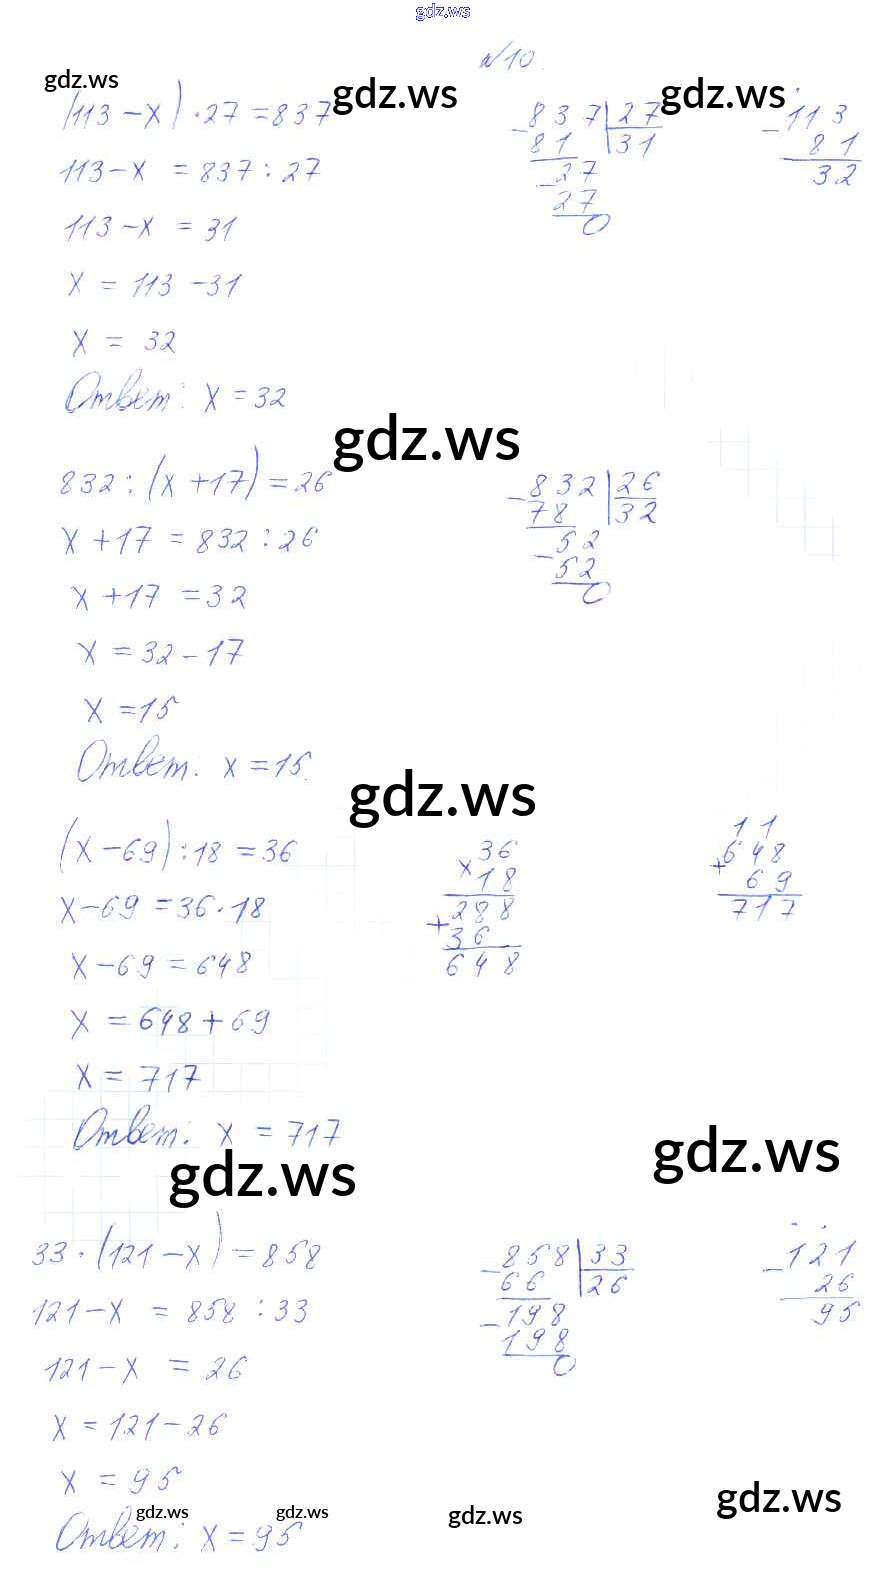 gdz.ws
№10.
gdz.ws
gdz.ws
gdz.ws
(113 - x) · 27 = 837
113 - x = 837 : 27
113 - x = 31
x = 113 - 31
x = 32
Ответ: x = 32
- 837 | 27
81 | 31
- 27
27
0
- 113
81
32
gdz.ws
gdz.ws
832 : (x + 17) = 26
x + 17 = 832 : 26
x + 17 = 32
x = 32 - 17
x = 15
Ответ: x = 15.
- 832 | 26
78 | 32
- 52
52
0
gdz.ws
(x - 69) : 18 = 36
x - 69 = 36 · 18
x - 69 = 648
x = 648 + 69
x = 717
Ответ: x = 717
x 36
18
288
+ 36
648
1 1
+ 648
69
717
gdz.ws
gdz.ws
33 · (121 - x) = 858
121 - x = 858 : 33
121 - x = 26
x = 121 - 26
x = 95
Ответ: x = 95
- 858 | 33
66 | 26
- 198
198
0
- 121
26
95
gdz.ws
gdz.ws
gdz.ws
gdz.ws